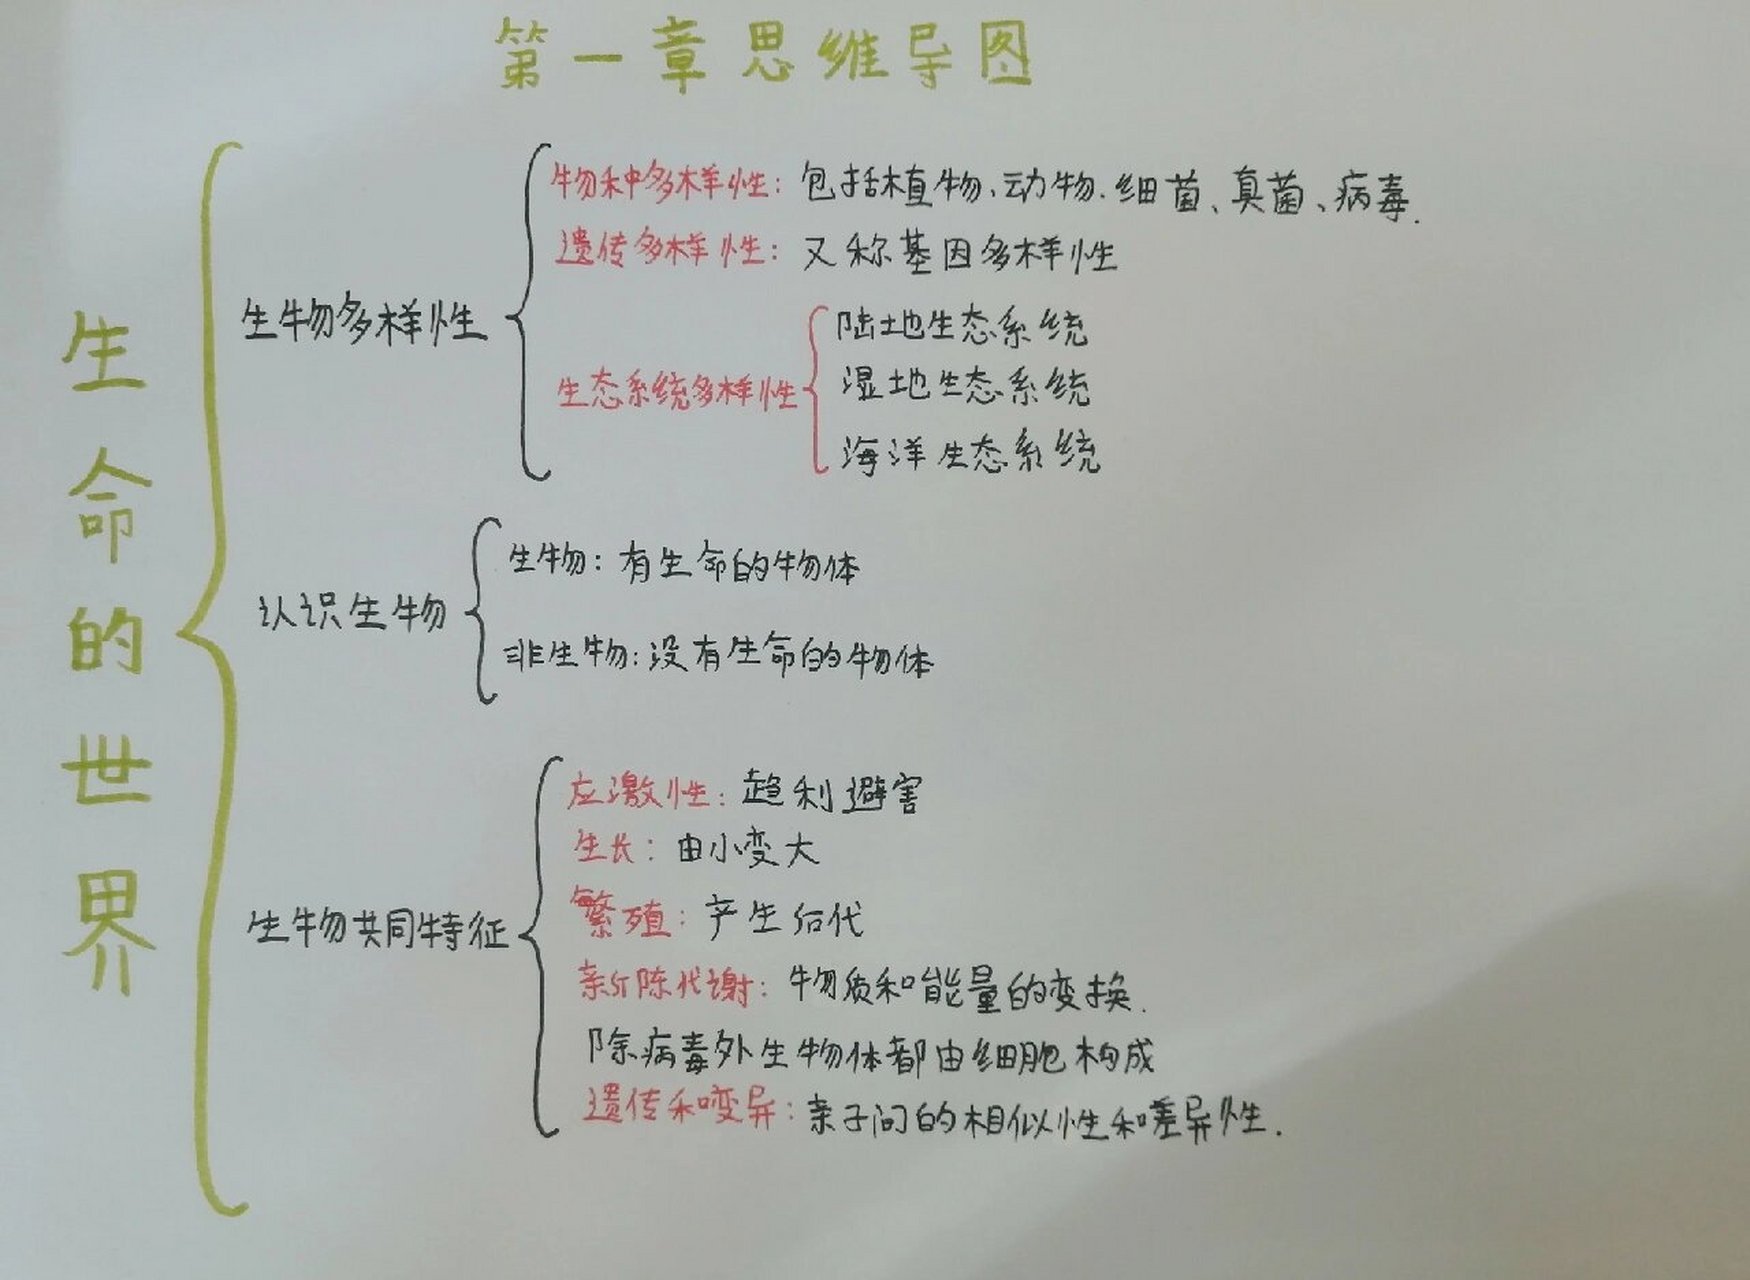 第一章思维导图
生命的世界
生物多样性
物种多样性：包括植物、动物、细菌、真菌、病毒.
遗传多样性：又称基因多样性
生态系统多样性
陆地生态系统
湿地生态系统
海洋生态系统
认识生物
生物：有生命的物体
非生物：没有生命的物体
生物共同特征
应激性：趋利避害
生长：由小变大
繁殖：产生后代
新陈代谢：物质和能量的变换.
除病毒外生物体都由细胞构成
遗传和变异：亲子间的相似性和差异性.